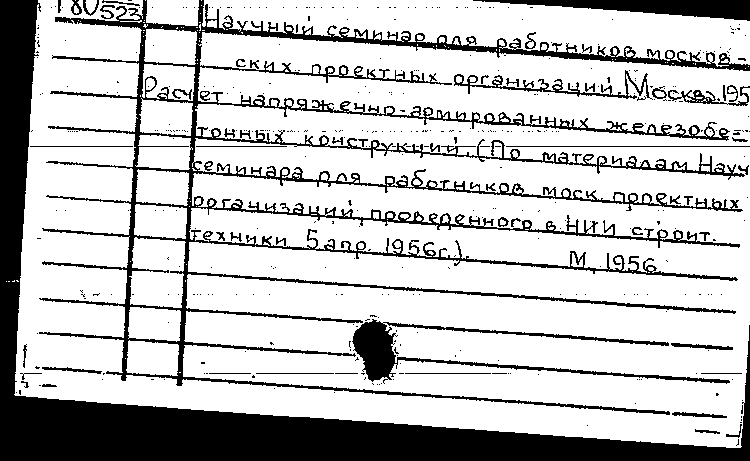 180 523 Научный семинар для работников москов-
ских проектных организаций. Москва. 195
Расчет напряженно-армированных железобе=
тонных конструкций. (По материалам Науч
семинара для работников моск. проектных
организаций, проведенного в НИИ строит.
техники 5 апр. 1956г.). М, 1956